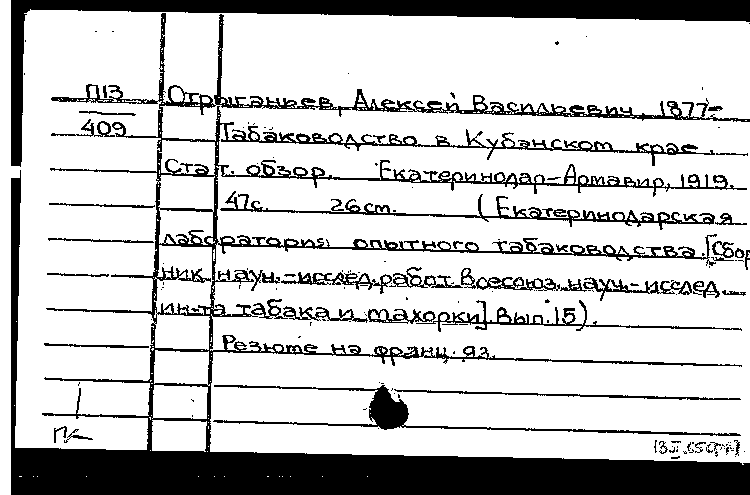 П13
409
Отрыганьев, Алексей Васильевич, 1877-
Табаководство в Кубанском крае.
Стат. обзор. Екатеринодар-Армавир, 1919.
47с. 26cm. (Екатеринодарская
лаборатория опытного табаководства. [Сбор
ник науч.-исслед. работ. Всесоюз. науч.-исслед.
ин-та табака и махорки] Вып.15).
Резюме на франц. яз.